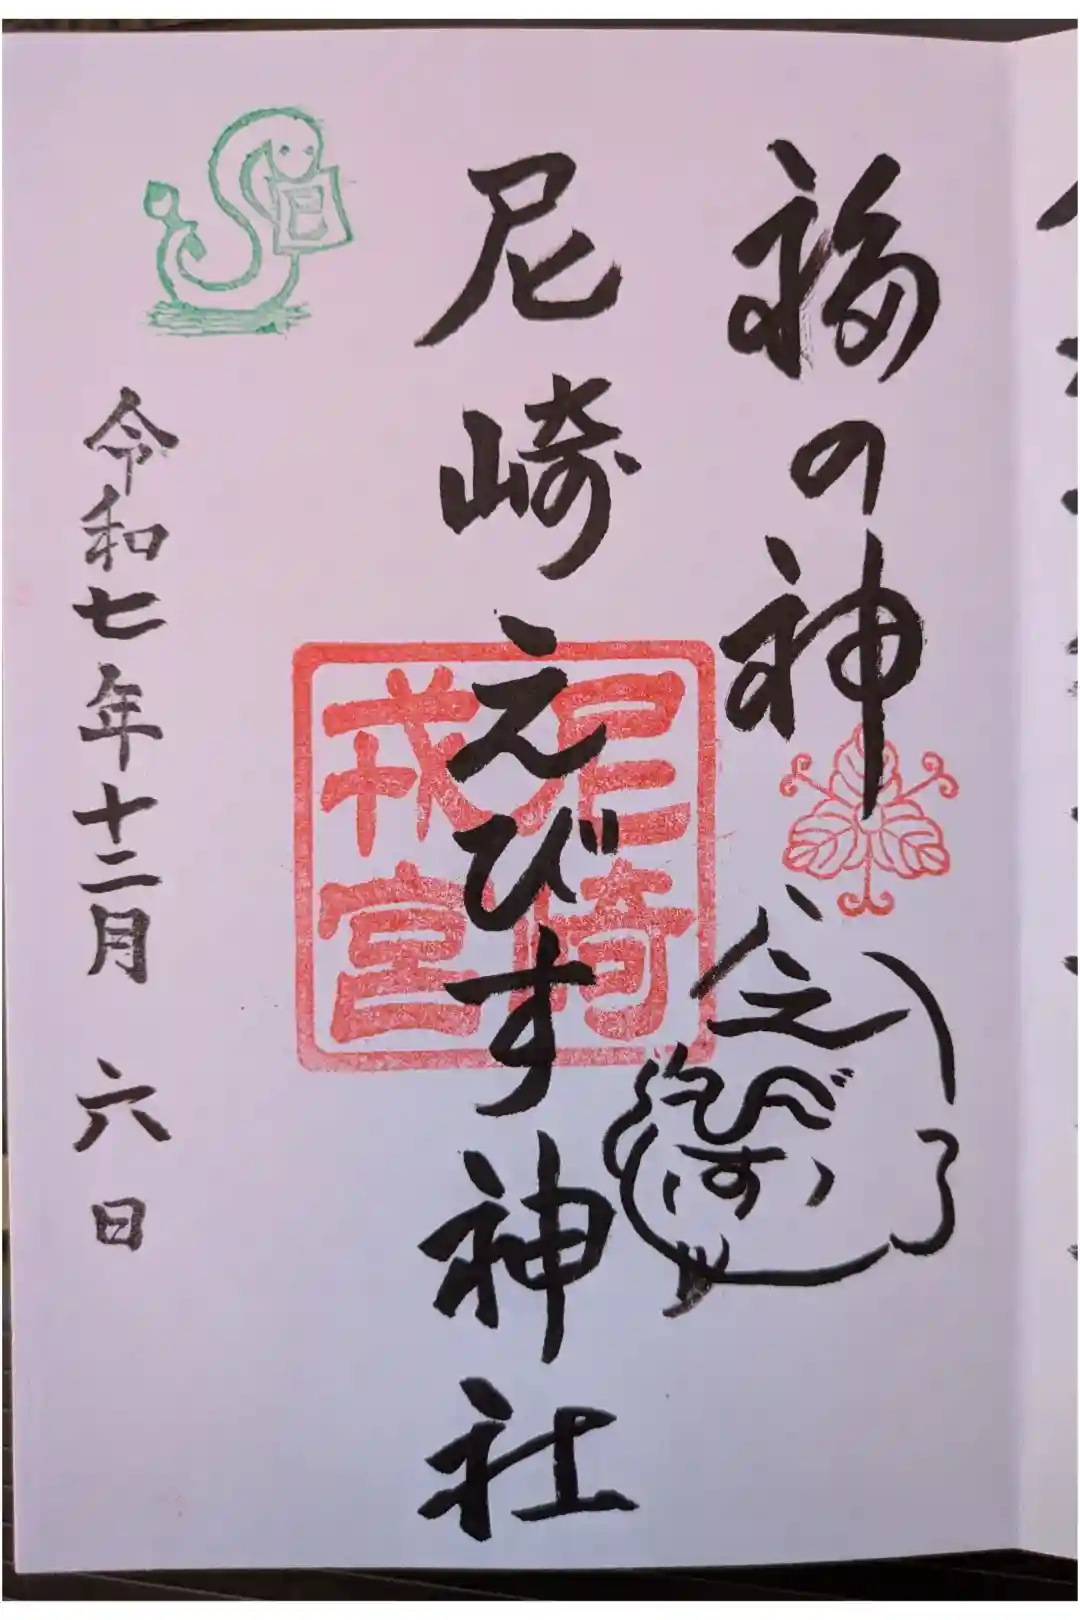 福の神
えべす
尼崎えびす神社
尼崎
戎宮
巳
令和七年十二月 六日